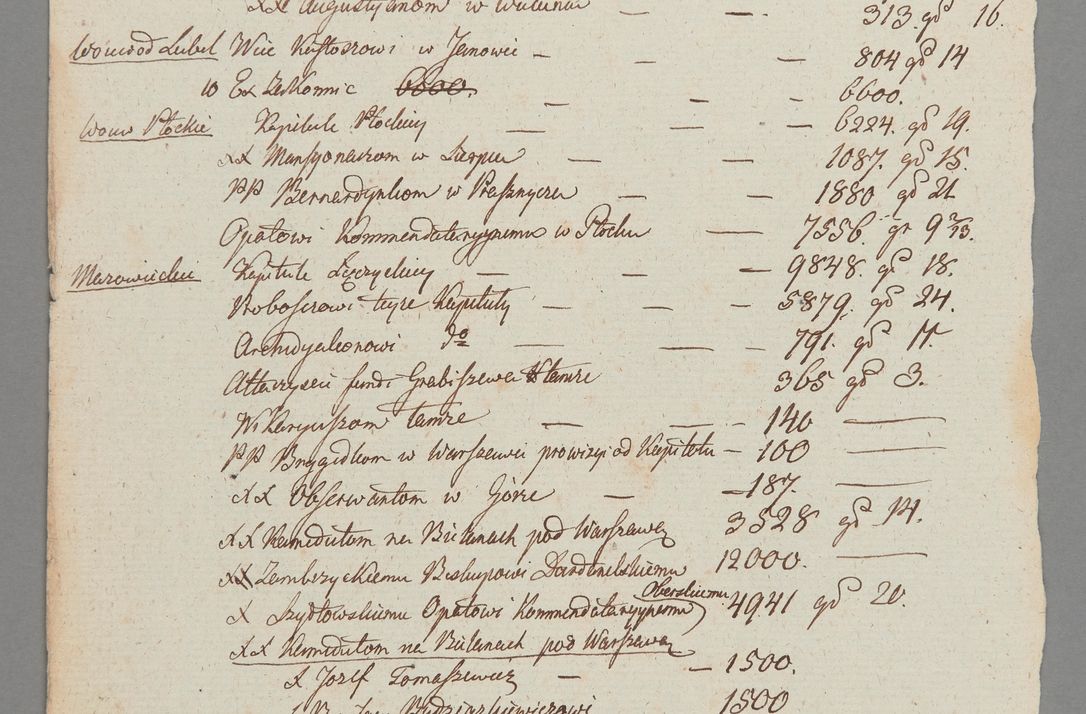 XX Augustyanom w Wieluniu — — 313. gr 16.
Woiewod Lubel Wice Kustoszowi w Janowie — — — 804 gr 14
w Ex Zakonnic 6600. — — — 6600.
Woiew Płockie Kapitule Płockiey — — — 6224. gr 19.
XX Mansyonarzom w Sierpcu — — 1087. gr 15.
PP Bernardynkom w Prasznyczu — — 1880 gr 21
Opatowi Kommendataryynemu w Płocku — 7556. gr 9 2/23.
Mazowieckie Kapitule Łęczyckiey — — — 9848. gr 18.
Proboszczowi teyże Kapituły — — — 5879. gr 24.
Archidyakonowi do — — — 791. gr 11.
Altaryscie fund: Grabiszewa tamże 365 gr 3.
Wikaryuszom tamże — — — 140 —
PP Brygidkom w Warszawie prowizyi od Kapitału — 100 —
XX Obserwantom w Górze — — 187. —
XX Kamedułom na Bielanach pod Warszawą 3528 gr 14.
XX Zambrzyckiemu Biskupowi Dardanelskiemu 12000. —
X Szydłowskiemu Opatowi Kommendataryynemu Oberskiemu 4941 gr 20.
XX Kamedułom na Bielanach pod Warszawą
X Jozef Tomaszewicz — — 1500.
1500